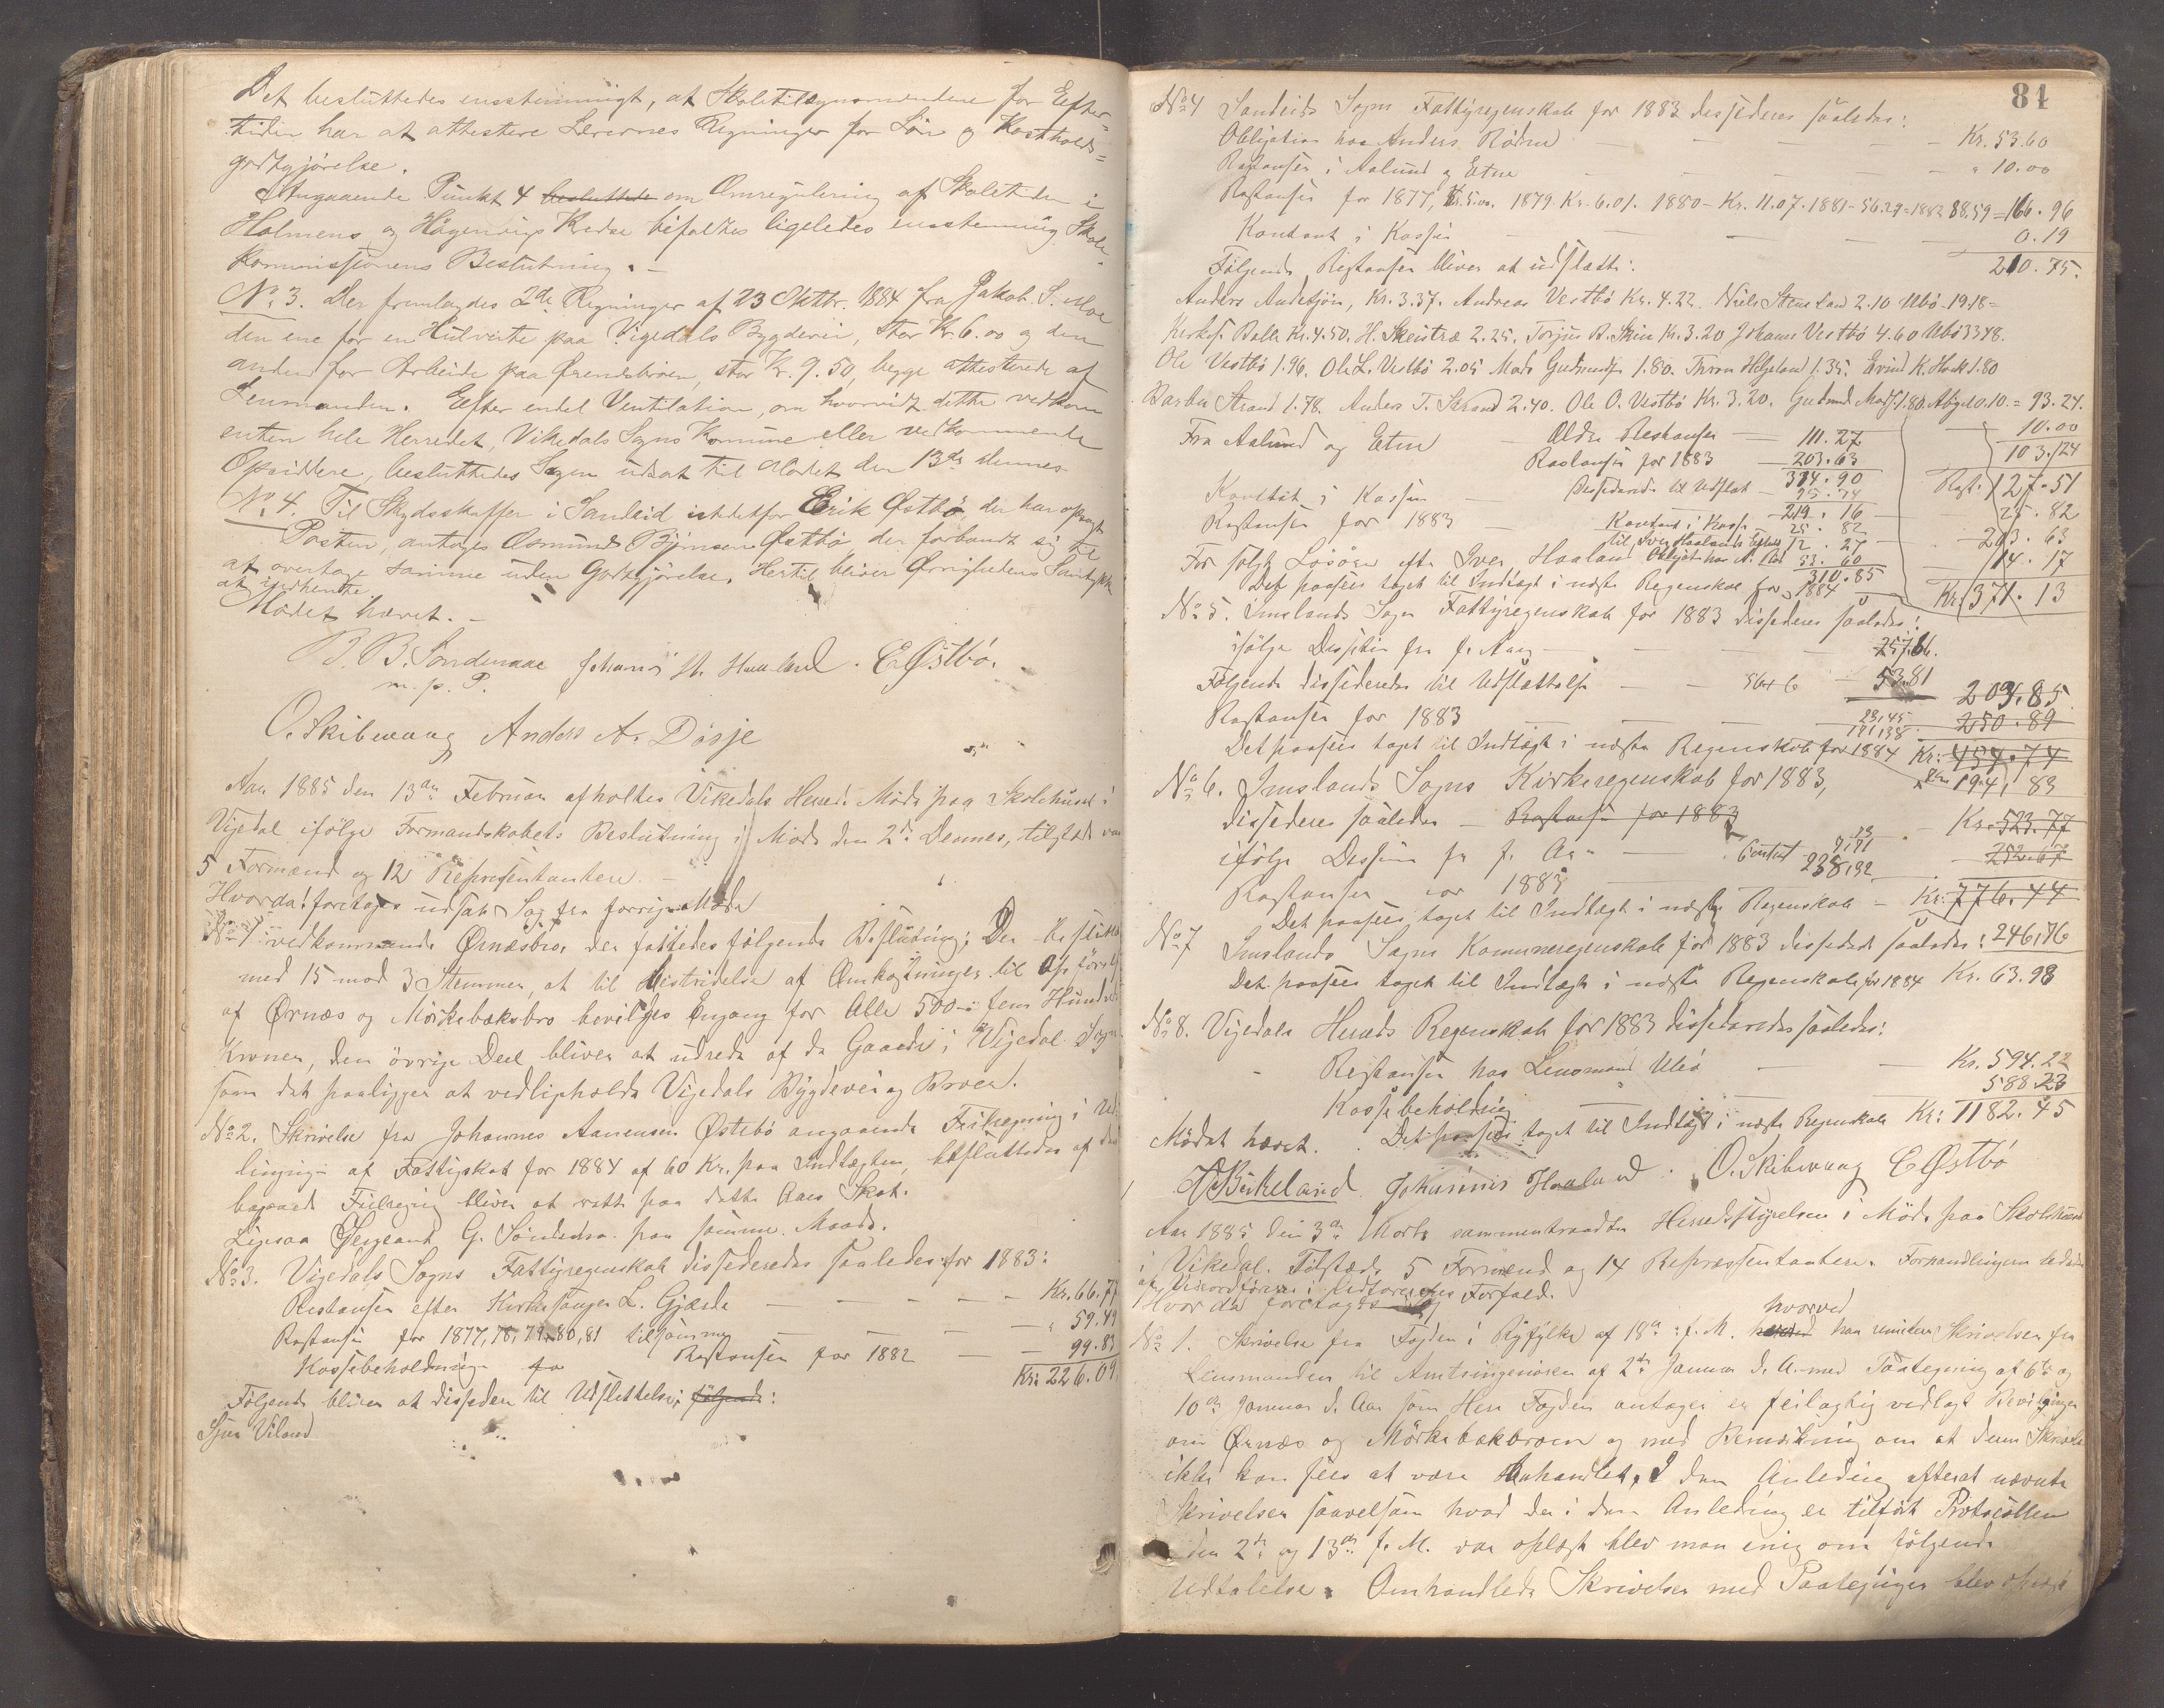 Det besluttedes enstemmigt, at Skoletilsynsmændene for Efter=
tiden har at attestere Lærernes Regninger for Løn og Kostholds=
godtgjörelse.
Angaaende Punkt 4 besluttede om Omregulering af Skoletiden i
Holmens og Kredse bifaldtes ligeledes enstemmig Skole-
kommissionens Beslutning. -
No 3. Der fremlagdes 2de Regninger af 23 Oktbr. 1884 fra Jakob S.
den ene for en Hulveite paa Vigedals Bygdevei, stor Kr. 6.00 og den
anden for Arbeide paa stor Kr. 9.50, begge attesterede af
Lensmanden. Efter endel Ventilation, om hvorvidt dette vedkom
enten hele Herredet, Vikedals Sogns Komune eller vedkommende
Opsiddere, besluttedes Sagen udsat til Mødet den 13de dennes
No 4. Til Skydsskaffer i Sandeid istedetfor Erik Østbö der har opsagt
Posten, antoges Østbö der forbandt sig til
at overtage samme uden Godtgjörelse. Hertil bliver Øvrighedens Samtykke
at indhente.
Mödet hævet. -
B. B. Söndenaae Johannes H. Haaland. E Østbö.
m. p. P.
O. Skibevaag Anders A. Dösje
Aar 1885 den 13de Februar afholdtes Vikedals Herreds Möde paa Skolehuset i
Vigedal ifölge Formandskabets Beslutning i Möde den 2de Dennes, tilstede var
5 Formænd og 12 Repræsentantere. -
Hvorda foretages udsat Sag fra forrige Møde
No 1 vedkommende Ørnæsbro, der fattedes fölgende Beslutning: Der
med 15 mod 3 Stemmer, at til Bestridelse af Omkostninger til Opförelse
af Ørnæs og Mörkebæksbro bevilges Engang for Alle 500 - fem Hundrede
Kroner, den övrige Deel bliver at udrede af de Gaarde i Vigedal Sogn
som det paaligger at vedligeholde Vigedals Bygdevei og Broer.
No 2. Skrivelse fra Johannes Aanensen Østebö angaaende i Ud-
ligning af Fattigskat for 1884 af 60 Kr. paa Indtægten, besluttedes af
bliver at rette paa dette Aars Skat.
Ligesaa Sergeant G. Söndenaa paa samme Maade.
No 3. Vigedals Sogns Fattigregnskab dissideredes saaledes for 1883:
Restanser efter Kirkesanger L. Gjærde — — — Kr. 66.77
Restanser for 1877, 78, 79, 80, 81 tilsammen — — — " 59.49
Kassebeholdning for Restanser for 1882 — — 99.83
Kr: 226.09
Fölgende bliver at dissidere til Udslettelse: fölgende:
Sjur Viland
84
No 4 Sandeids Sogns Fattigregnskab for 1883 dissideres saaledes:
Obligation hos Anders — — — — Kr. 53.60
Restanser i Aalund og Etne — — — — " 10.00
Restanser for 1877, Kr. 5.00. 1879 Kr. 6.01. 1880 - Kr. 11.07. 1881 - 56.29 - 1882 88.59 = 166.96
Kontant i Kassen — — — — 0.19
Fölgende Restanser bliver at udslette: 210.75.
Anders Kr. 3.37. Andreas Vestbö Kr. 4.22. Niels 2.10 Ulvö 19.18 =
Kr. 4.50. H. Skeistræ 2.25. Torjus B. Kr. 3.20 Johannes Vestbö 4.60 Ulvö 33.48.
Ole Vestbö 1.96. Ole L. Vestbö 2.05 Mads Gudmunds 1.80. Helgeland 1.35. Eivind K. 1.80
Strand 1.78. Anders T. Strand 2.40. Ole O. Vestbö Kr. 3.20. Gudmund Mads 1.80 10.10 = 93.24.
Fra Aalund og Etne — Ældre Restanser — 111.27 — 10.00
Restanser for 1883 — 203.63 103.24
314.90
Kontant i Kassen — Dissiderede til Udslet — 95.74 Rest. 127.51
219.16
Restanser for 1883 — Kontant i Kasse 25.82 — 25.82
til Iver Haalands Efterl. 12.27 — 203.63
For solgt Lösöre efter Iver Haaland Obligat. hos A. 53.60 — 14.17
310.85
Det passeres taget til Indtægt i næste Regnskab for 1884 Kr. 371.13
No 5. Imslands Sogns Fattigregnskab for 1883 dissideres saaledes:
ifölge Dessision fra f. Aar — — — 257.66.
Fölgende dissideredes til Udslættelse — — 53.81
209.85
Restanser for 1883 — — 250.89
Det passeres taget til Indtægt i næste Regnskab for 1884 Kr: 454.74
194.83
No 6. Imslands Sogns Kirkeregnskab for 1883,
dissideres saaledes — Restanser for 1883 — Kr. 523.77
ifölge Dessision fra f. Aar — Contant — 252.67
Restanser for 1883 — 238.92 — Kr: 776.44
Det passeres taget til Indtægt i næste Regnskab —
No 7 Imslands Sogns Kommuneregnskab for 1883 dissideret saaledes: 246.76
Det passeres taget til Indtægt i næste Regnskab for 1884 Kr. 63.98
No 8. Vigedals Herreds Regnskab for 1883 dissideredes saaledes:
Restanser hos Lensmand Ulvö — — Kr. 594.22
Kassebeholdning — — — 588.23
Mödet hævet. Det passeres taget til Indtægt i næste Regnskab Kr: 1182.45
Birkeland Johannes Haaland. O. Skibevaag E Østbö
Aar 1885 den 3de Marts sammentraadte Herredsstyrelsen i Möde paa Skolehuset
i Vikedal. Tilstæde 5 Formænd og 14 Repræssentantere. Forhandlingerne lededes
af Viceordförer i Ordförerens Forfald.
Hvor da foretages Sag
hvorved
No 1. Skrivelse fra Fogden i Ryfylke af 18de f. M. herved han remitere Skrivelser fra
Lensmanden til Amtsingeniören af 2de Januar d. A. med Paategning af 6te og
10de Januar d. Aar som Herr Fogden antager er feilagtig vedlagt Bevilginger
om Ørnæs og Mörkebækbroen og med Bemærkning om at denne Skrivelse
ikke kan sees at være Behandlet. I den Anledning efterat nævnte
Skrivelser saavelsom hvad der i den Anledning er tilfört Protocollen
den 2de og 13de f. M. var oplæst blev man enig om fölgende
Udtalelse. Omhandlede Skrivelser med Paategninger blev oplæst